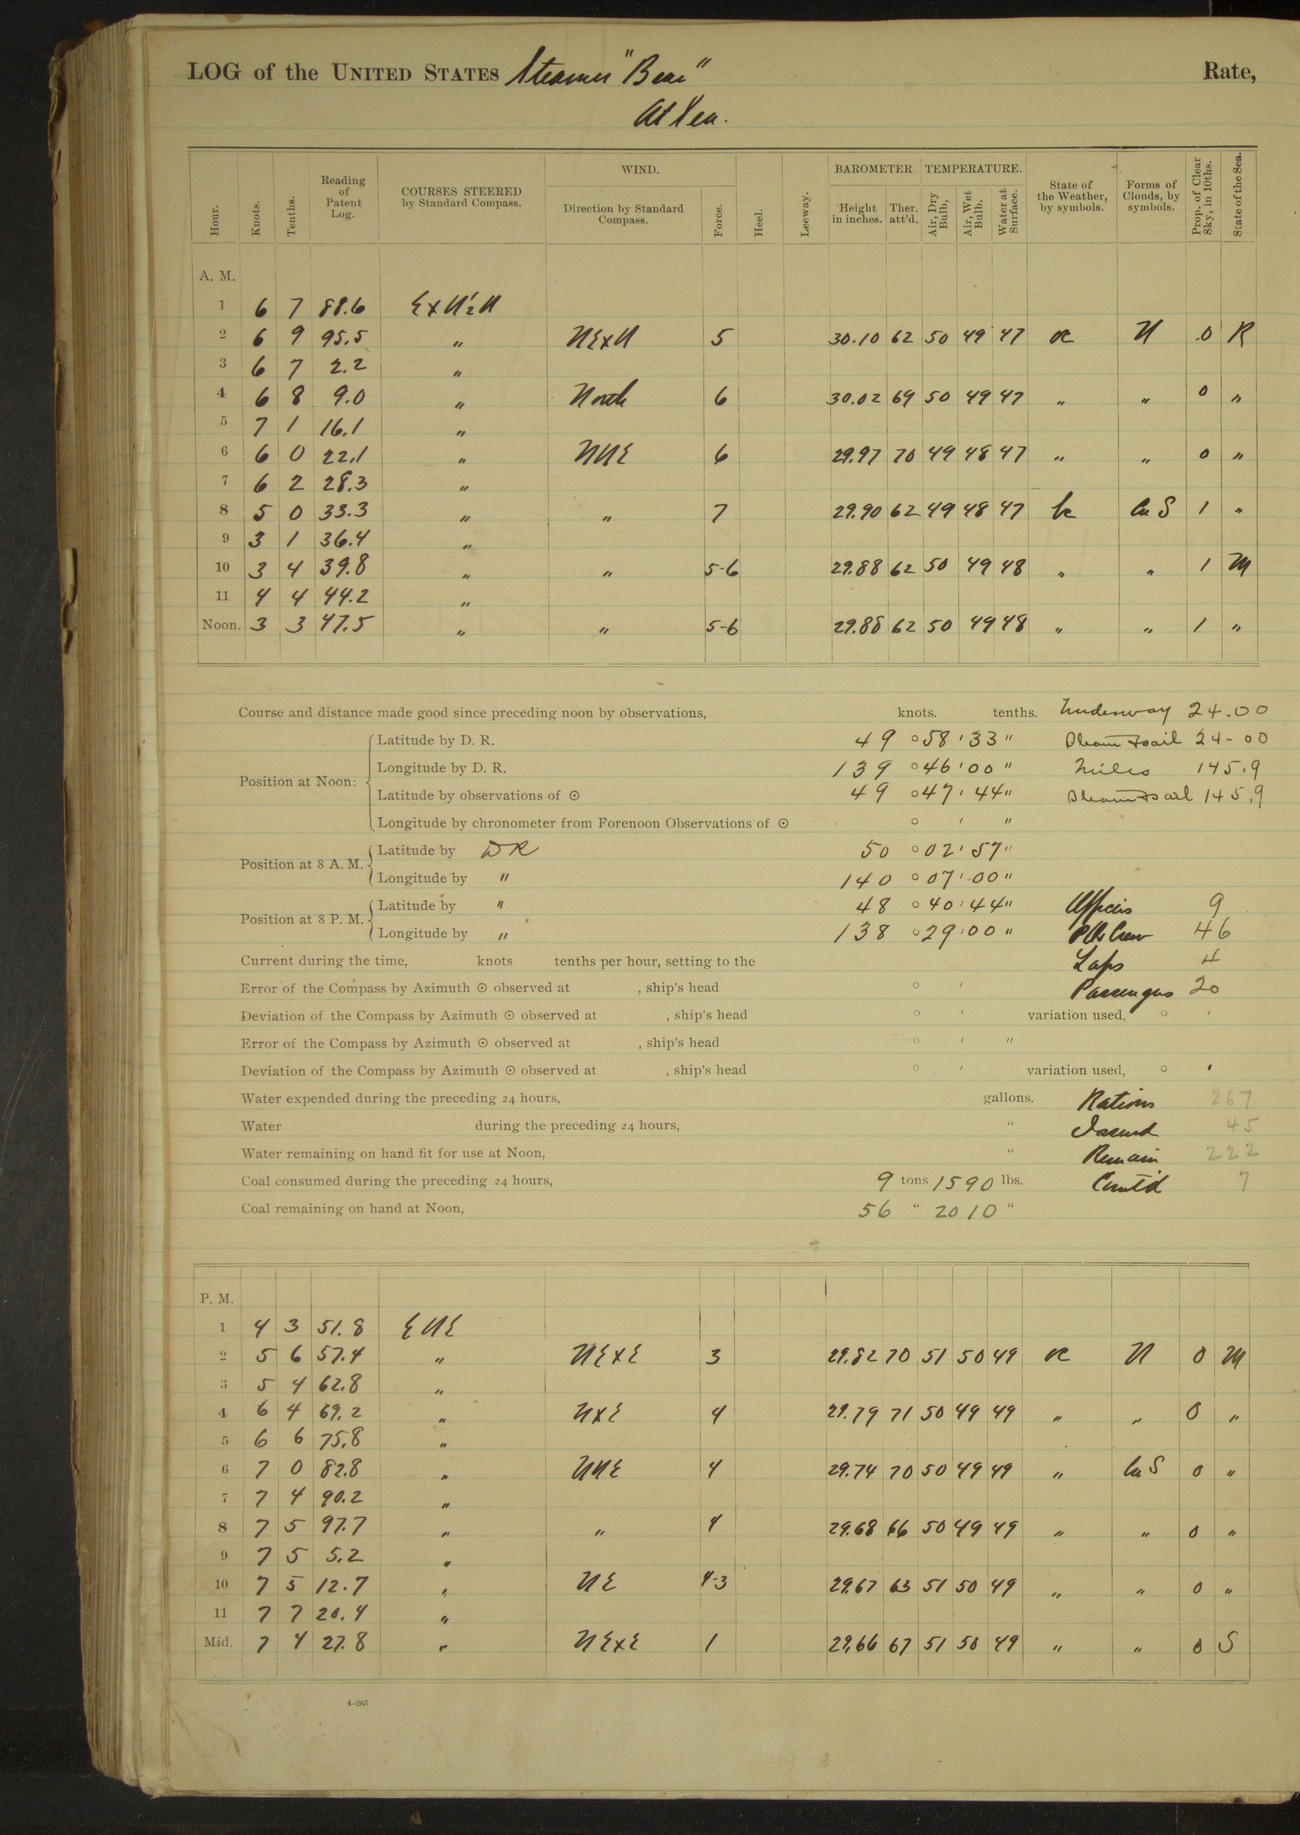 LOG of the UNITED STATES Steamer "Bear" Rate,
At Sea.
Hour. Knots. Tenths. Reading of Patent Log. COURSES STEERED by Standard Compass. WIND. Direction by Standard Compass. Force. Heel. Leeway. BAROMETER. Height in inches. Ther. att'd. TEMPERATURE. Air, Dry Bulb, Air, Wet Bulb. Water at Surface. State of the Weather, by symbols. Forms of Clouds, by symbols. Prop. of Clear Sky, in 10ths. State of the Sea.
A. M.
1 6 7 88.6 ExN½N
2 6 9 95.5 " NExN 5 30.10 62 50 49 47 oc N .0 R
3 6 7 2.2 "
4 6 8 9.0 " North 6 30.02 69 50 49 47 " " 0 "
5 7 1 16.1 "
6 6 0 22.1 " NNE 6 29.97 70 49 48 47 " " 0 "
7 6 2 28.3 "
8 5 0 33.3 " " 7 29.90 62 49 48 47 bc Cu S 1 "
9 3 1 36.4 "
10 3 4 39.8 " " 5-6 29.88 62 50 49 48 " " 1 M
11 4 4 44.2 "
Noon. 3 3 47.5 " " 5-6 29.88 62 50 49 48 " " 1 "
Course and distance made good since preceding noon by observations, knots. tenths. Underway 24.00
Latitude by D. R. 49 ° 58 ' 33 " Steam & sail 24-00
Position at Noon: Longitude by D. R. 139 ° 46 ' 00 " Miles 145.9
Latitude by observations of ☉ 49 ° 47 ' 44 " Steam & sail 145.9
Longitude by chronometer from Forenoon Observations of ☉ ° ' "
Position at 8 A. M. Latitude by DR 50 ° 02 ' 57 "
Longitude by " 140 ° 07 ' 00 "
Position at 8 P. M. Latitude by " 48 ° 40 ' 44 " Officers 9
Longitude by " 138 ° 29 ' 00 " Crew 46
Current during the time, knots tenths per hour, setting to the 4
Error of the Compass by Azimuth ☉ observed at , ship's head ° ' Passengers 20
Deviation of the Compass by Azimuth ☉ observed at , ship's head ° ' variation used, ° '
Error of the Compass by Azimuth ☉ observed at , ship's head ° ' "
Deviation of the Compass by Azimuth ☉ observed at , ship's head ° ' variation used, ° '
Water expended during the preceding 24 hours, gallons. Rations 267
Water during the preceding 24 hours, " Issued 45
Water remaining on hand fit for use at Noon, " Remain 222
Coal consumed during the preceding 24 hours, 9 tons 1590 lbs. Comt'd 7
Coal remaining on hand at Noon, 56 " 2010 "
P. M.
1 4 3 51.8 ENE
2 5 6 57.4 " NExE 3 29.82 70 51 50 49 oc N 0 M
3 5 4 62.8 "
4 6 4 69.2 " NxE 4 29.79 71 50 49 49 " " 0 "
5 6 6 75.8 "
6 7 0 82.8 " NNE 4 29.74 70 50 49 49 " Cu S 0 "
7 7 4 90.2 "
8 7 5 97.7 " " 4 29.68 66 50 49 49 " " 0 "
9 7 5 5.2 "
10 7 5 12.7 " NE 4-3 29.67 63 51 50 49 " " 0 "
11 7 7 20.4 "
Mid. 7 4 27.8 " NExE 1 29.66 67 51 50 49 " " 0 S
4-265